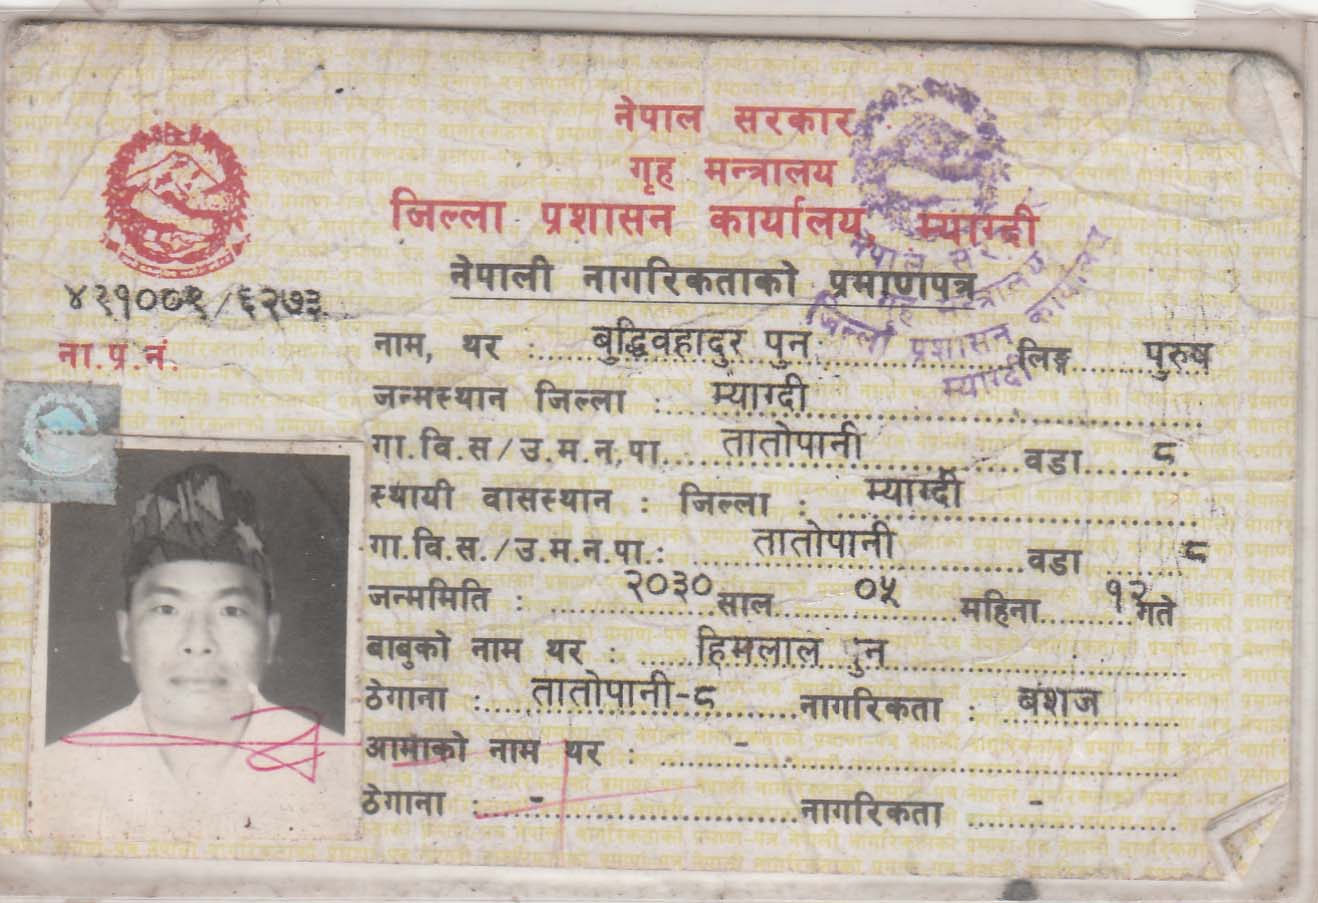 नेपाल सरकार
गृह मन्त्रालय
जिल्ला प्रशासन कार्यालय, म्याग्दी
नेपाली नागरिकताको प्रमाणपत्र
ना.प्र.नं.
नाम, थर : बुद्धिवहादुर पुन लिङ्ग पुरुष
जन्मस्थान जिल्ला : म्याग्दी
गा.वि.स/उ.म.न.पा. तातोपानी वडा ८
स्थायी वासस्थान : जिल्ला : म्याग्दी
गा.वि.स./उ.म.न.पा.: तातोपानी वडा ८
जन्ममिति : २०३० साल ०५ महिना १२ गते
बाबुको नाम थर : हिमलाल पुन
ठेगाना : तातोपानी-८ नागरिकता : बंशज
आमाको नाम थर : -
ठेगाना : - नागरिकता -
नेपाल सरकार
गृह मन्त्रालय
जिल्ला प्रशासन कार्यालय
म्याग्दी